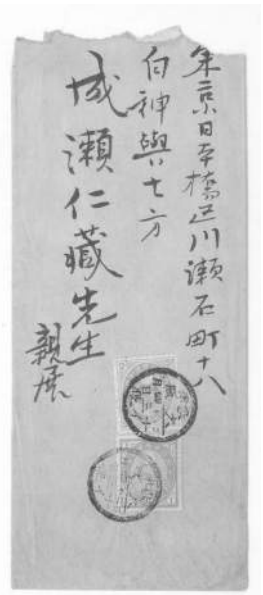 東京日本橋区川瀬石町十八
白神與七方
成瀬仁蔵先生
親展